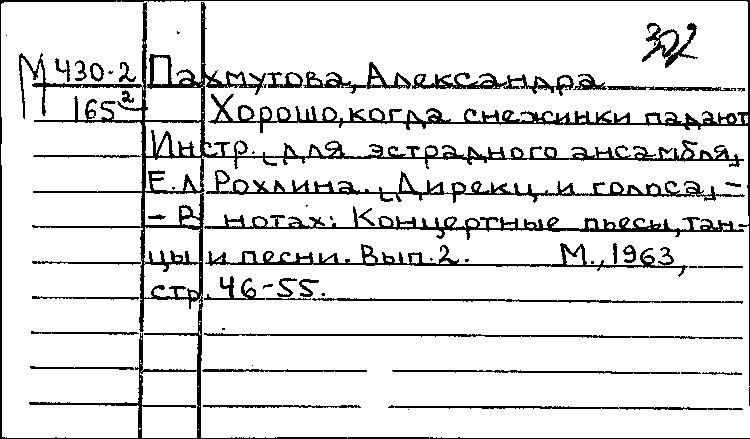 302
М 430-2 Пахмутова, Александра
165² Хорошо, когда снежинки падают
Инстр. [для эстрадного ансамбля]
Е.Л. Рохлина. [Дирекц. и голоса]. –
– В нотах: Концертные пьесы, тан-
цы и песни. Вып. 2. М., 1963,
стр. 46-55.